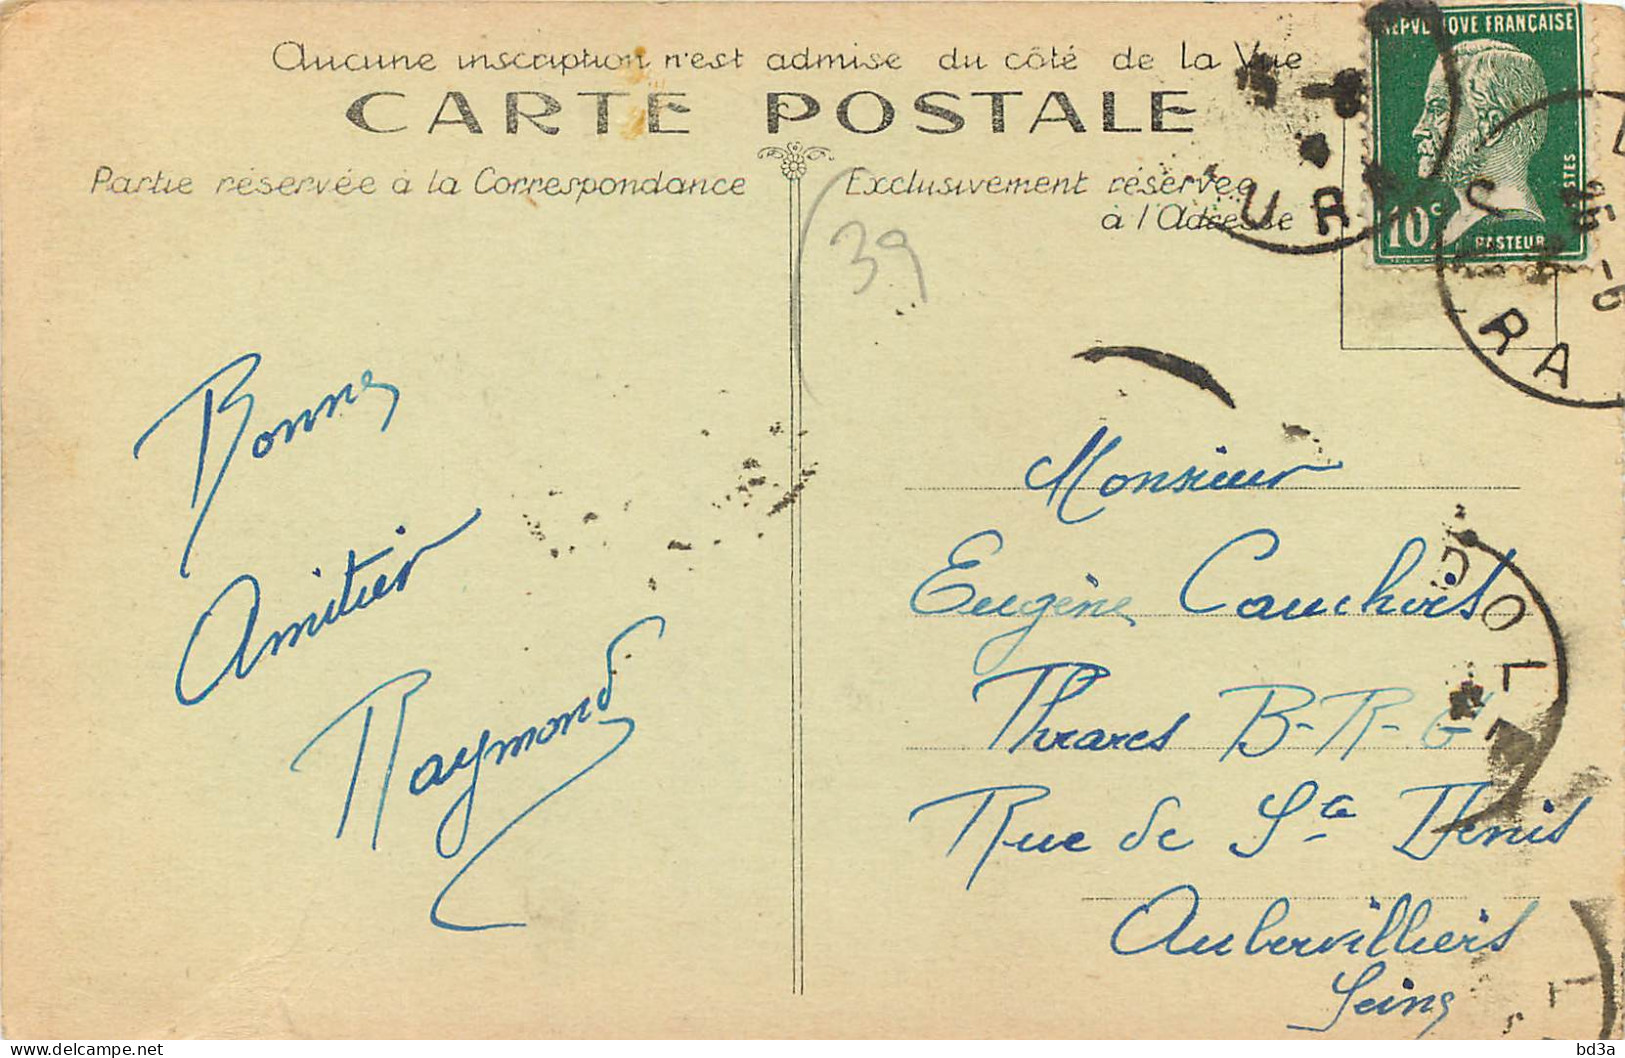 Aucune inscription n'est admise du côté de la Vue
CARTE POSTALE
Partie réservée à la Correspondance
Exclusivement réservée
à l'Adresse
REPUBLIQUE FRANÇAISE
POSTES
10c
PASTEUR
39
URA
JURA
Bonnes
Amitiés
Raymond
Monsieur
Eugène Cauchois
B-R-G
Rue de St Denis
Aubervilliers
Seine
DOLE
bd3a